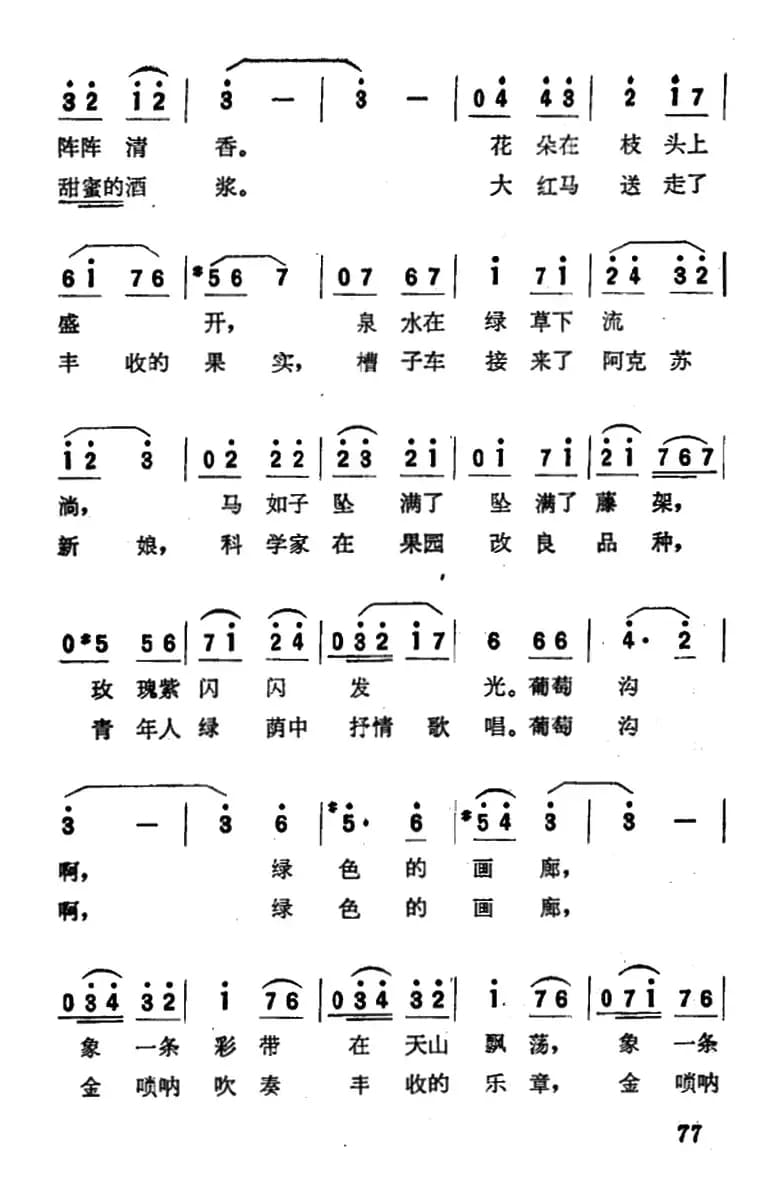 3̇2̇ 1̇2̇ | 3̇ — | 3̇ — | 04̇ 4̇3̇ | 2̇ 1̇7 |
阵阵 清 香。 花 朵在 枝 头上
甜蜜的酒 浆。 大 红马 送 走了
61̇ 76 | #56 7 | 07 67 | 1̇ 71̇ | 2̇4̇ 3̇2̇ |
盛 开, 泉 水在 绿 草下 流
丰 收的 果 实, 槽 子车 接 来了 阿克 苏
1̇2̇ 3̇ | 02̇ 2̇2̇ | 2̇3̇ 2̇1̇ | 01̇ 71̇ | 2̇1̇ 767 |
淌, 马 如子 坠 满了 坠 满了 藤 架,
新 娘, 科 学家 在 果园 改 良 品 种,
0#5 56 | 71̇ 2̇4̇ | 03̇2̇ 1̇7 | 6 66 | 4̇· 2̇ |
玫 瑰紫 闪 闪 发 光。葡萄 沟
青 年人 绿 荫中 抒情 歌 唱。葡萄 沟
3̇ — | 3̇ 6̇ | #5̇· 6̇ | #5̇4̇ 3̇ | 3̇ — |
啊, 绿 色 的 画 廊,
啊, 绿 色 的 画 廊,
03̇4̇ 3̇2̇ | 1̇ 76 | 03̇4̇ 3̇2̇ | 1̇. 76 | 071̇ 76 |
象 一条 彩 带 在 天山 飘 荡, 象 一条
金 唢呐 吹 奏 丰 收的 乐 章, 金 唢呐
77